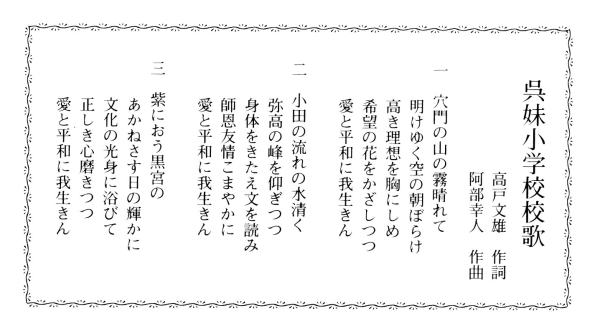 呉妹小学校校歌
高戸文雄 作詞
阿部幸人 作曲
一 穴門の山の霧晴れて
明けゆく空の朝ぼらけ
高き理想を胸にしめ
希望の花をかざしつつ
愛と平和に我生きん
二 小田の流れの水清く
弥高の峰を仰ぎつつ
身体をきたえ文を読み
師恩友情こまやかに
愛と平和に我生きん
三 紫におう黒宮の
あかねさす日の輝かに
文化の光身に浴びて
正しき心磨きつつ
愛と平和に我生きん